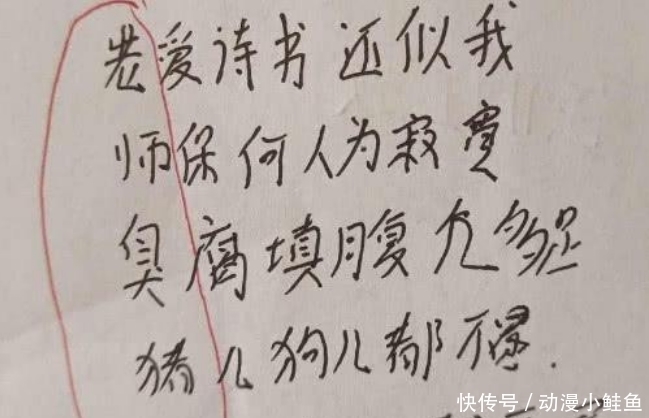 老爱诗书还似我
师保何人为寂寞
臭腐填腹尤多
猪儿狗儿都不
快传号/动漫小鲑鱼